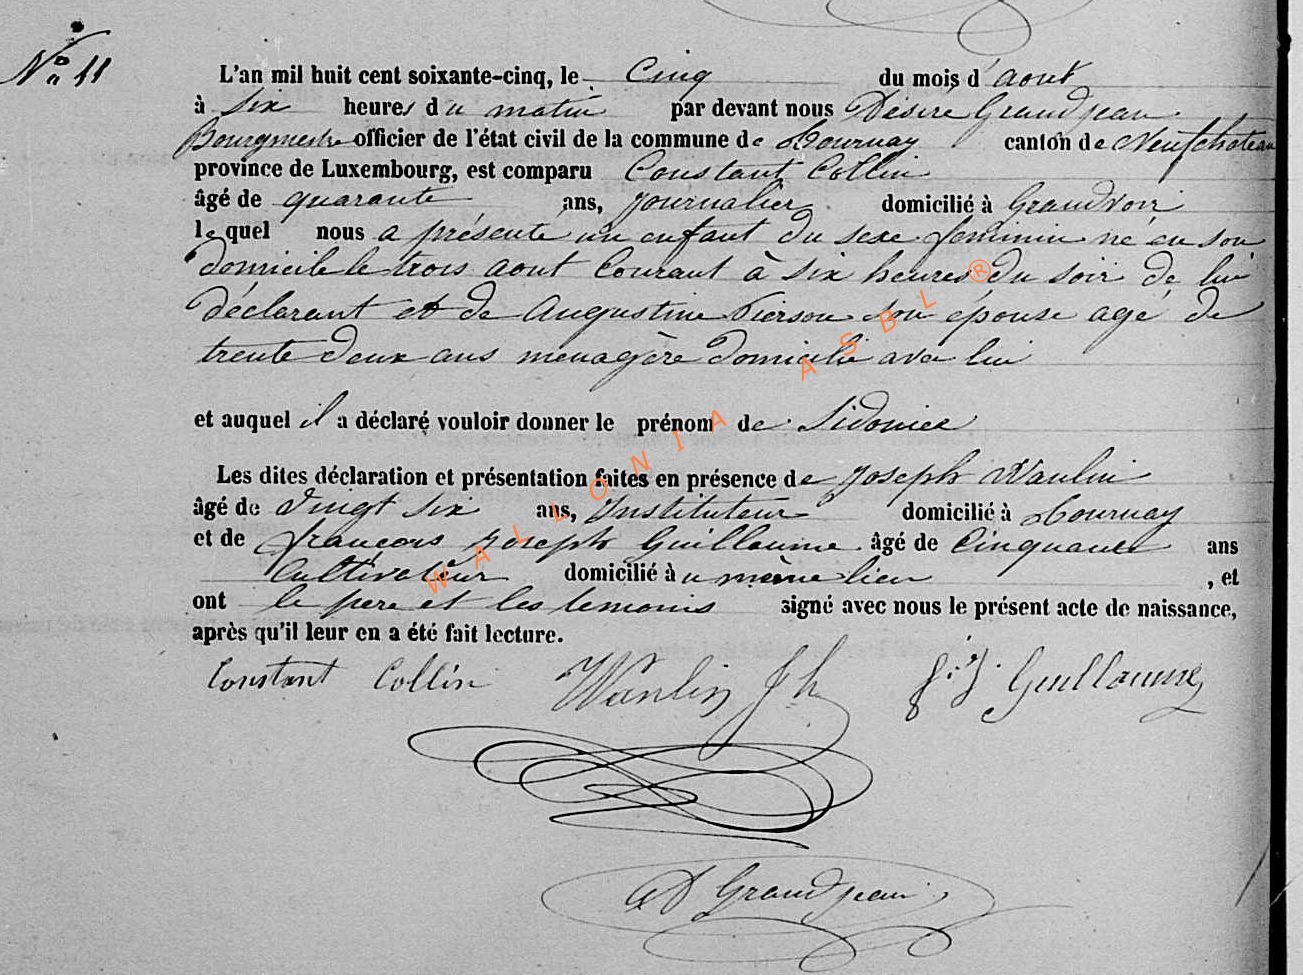 No 11
L'an mil huit cent soixante-cinq, le Cinq du mois d'aout
à six heures du matin par devant nous Désiré Grandjean
Bourgmestre officier de l'état civil de la commune de Tournay canton de Neufchateau
province de Luxembourg, est comparu Constant Collin
âgé de quarante ans, journalier domicilié à Grandvoir
lequel nous a présenté un enfant du sexe feminin né en son
domicile le trois aout Courant à six heures du soir de lui
déclarant et de Augustine Pierson son épouse agé de
trente deux ans menagère domicilié avec lui
et auquel il a déclaré vouloir donner le prénom de Sidonie
Les dites déclaration et présentation faites en présence de Joseph Wanlin
âgé de Vingt six ans, Instituteur domicilié à Tournay
et de francois Joseph Guillaume âgé de Cinquante ans
Cultivateur domicilié au même lieu , et
ont le pere et les temoins signé avec nous le présent acte de naissance,
après qu'il leur en a été fait lecture.
Constant Collin Wanlin Jh f.J. Guillaume
D Grandjean
WALLONIA ASBL ®